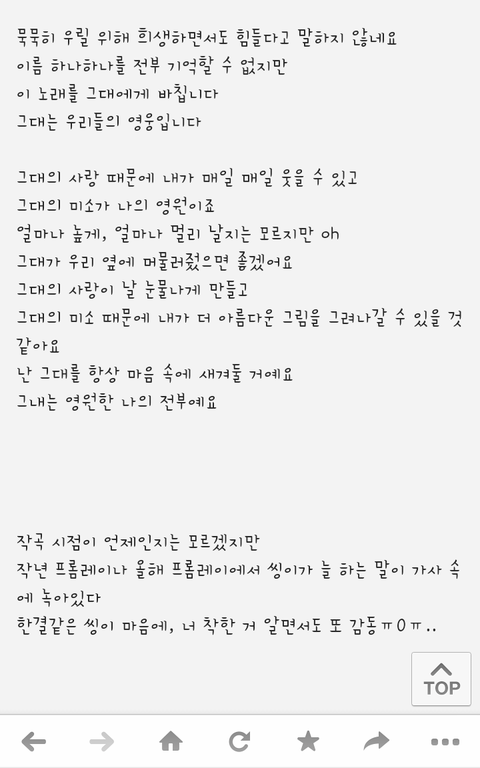 묵묵히 우릴 위해 희생하면서도 힘들다고 말하지 않네요
이름 하나하나를 전부 기억할 수 없지만
이 노래를 그대에게 바칩니다
그대는 우리들의 영웅입니다
그대의 사랑 때문에 내가 매일 매일 웃을 수 있고
그대의 미소가 나의 영원이죠
얼마나 높게, 얼마나 멀리 날지는 모르지만 oh
그대가 우리 옆에 머물러줬으면 좋겠어요
그대의 사랑이 날 눈물나게 만들고
그대의 미소 때문에 내가 더 아름다운 그림을 그려나갈 수 있을 것
같아요
난 그대를 항상 마음 속에 새겨둘 거예요
그내는 영원한 나의 전부예요
작곡 시점이 언제인지는 모르겠지만
작년 프롬레이나 올해 프롬레이에서 씽이가 늘 하는 말이 가사 속
에 녹아있다
한결같은 씽이 마음에, 너 착한 거 알면서도 또 감동ㅠ0ㅠ..
TOP